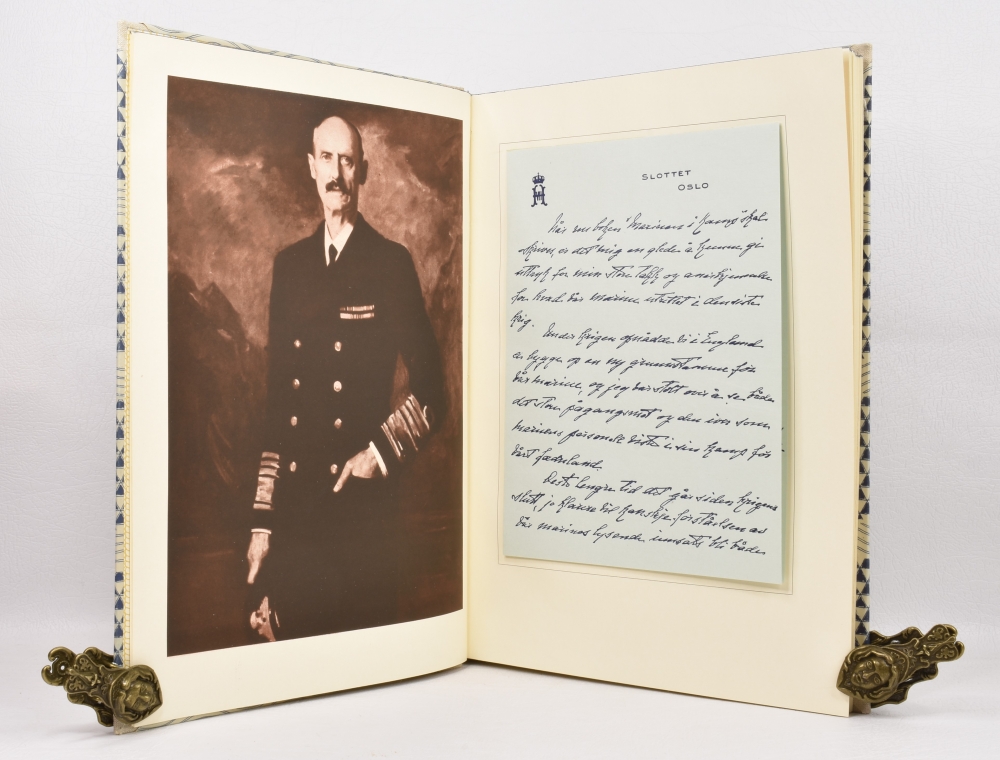 SLOTTET
OSLO
Når nu boken "Marinen i Kamp" skal
skrives, er det mig en glede å kunne gi
uttryk for min store takk og anerkjennelse
for hvad vår marine utrettet i den siste
krig.
Under krigen opnådde vi i England
å bygge op en ny grunnstamme for
vår marine, og jeg var stolt over å se både
det store pågangsmot og den iver som
marinens personell viste i sin kamp for
vårt fædreland.
Desto lengre tid det går siden krigens
slutt, jo klarere vil kanskje forståelsen av
vår marines lysende innsats bli både